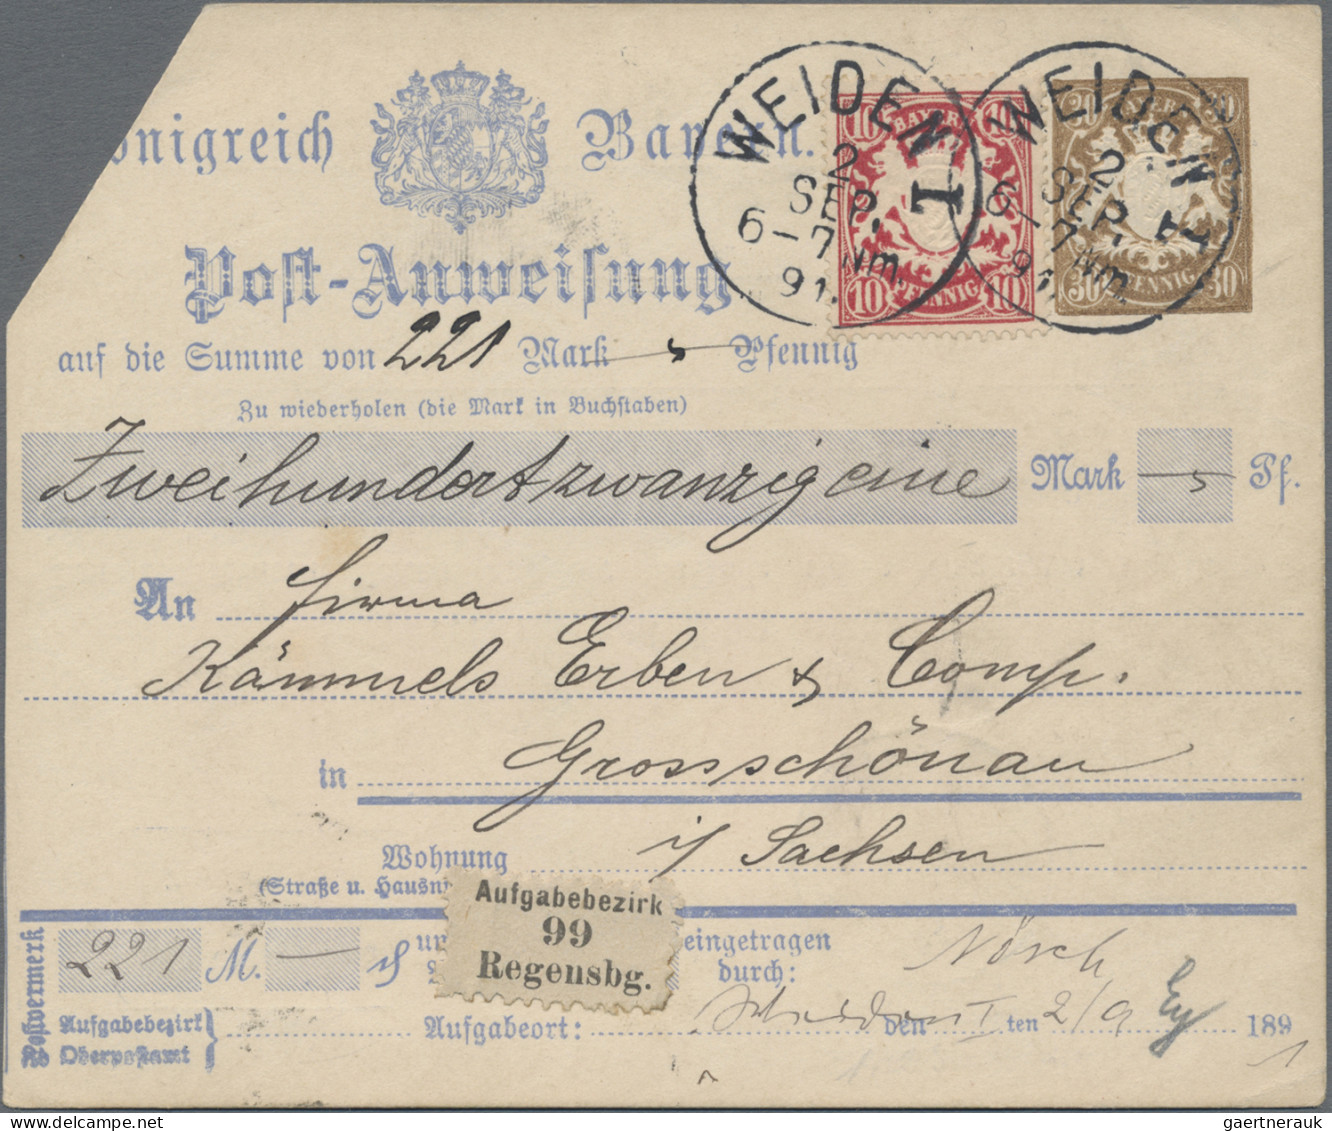 önigreich Bayern.
Post-Anweisung
auf die Summe von 221 Mark — Pfennig
Zu wiederholen (die Mark in Buchstaben)
Zweihundertzwanzigeine Mark — Pf.
An Firma
Kämmels Erben & Comp.
in Grossschönau
i/ Sachsen
Wohnung
(Straße u. Hausn
Aufgabebezirk
99
Regensbg.
Postvermerk
221 M. —
un
eingetragen
durch:
Aufgabebezirk
Oberpostamt
Aufgabeort: den I ten 2/9 1891
WEIDEN I
2
SEP.
6-7 Nm.
91.
WEIDEN I
2
SEP.
6-7 Nm.
91.
10 BAYERN 10
10 PFENNIG 10
30 BAYERN 30
30 PFENNIG 30
gaertnerauk